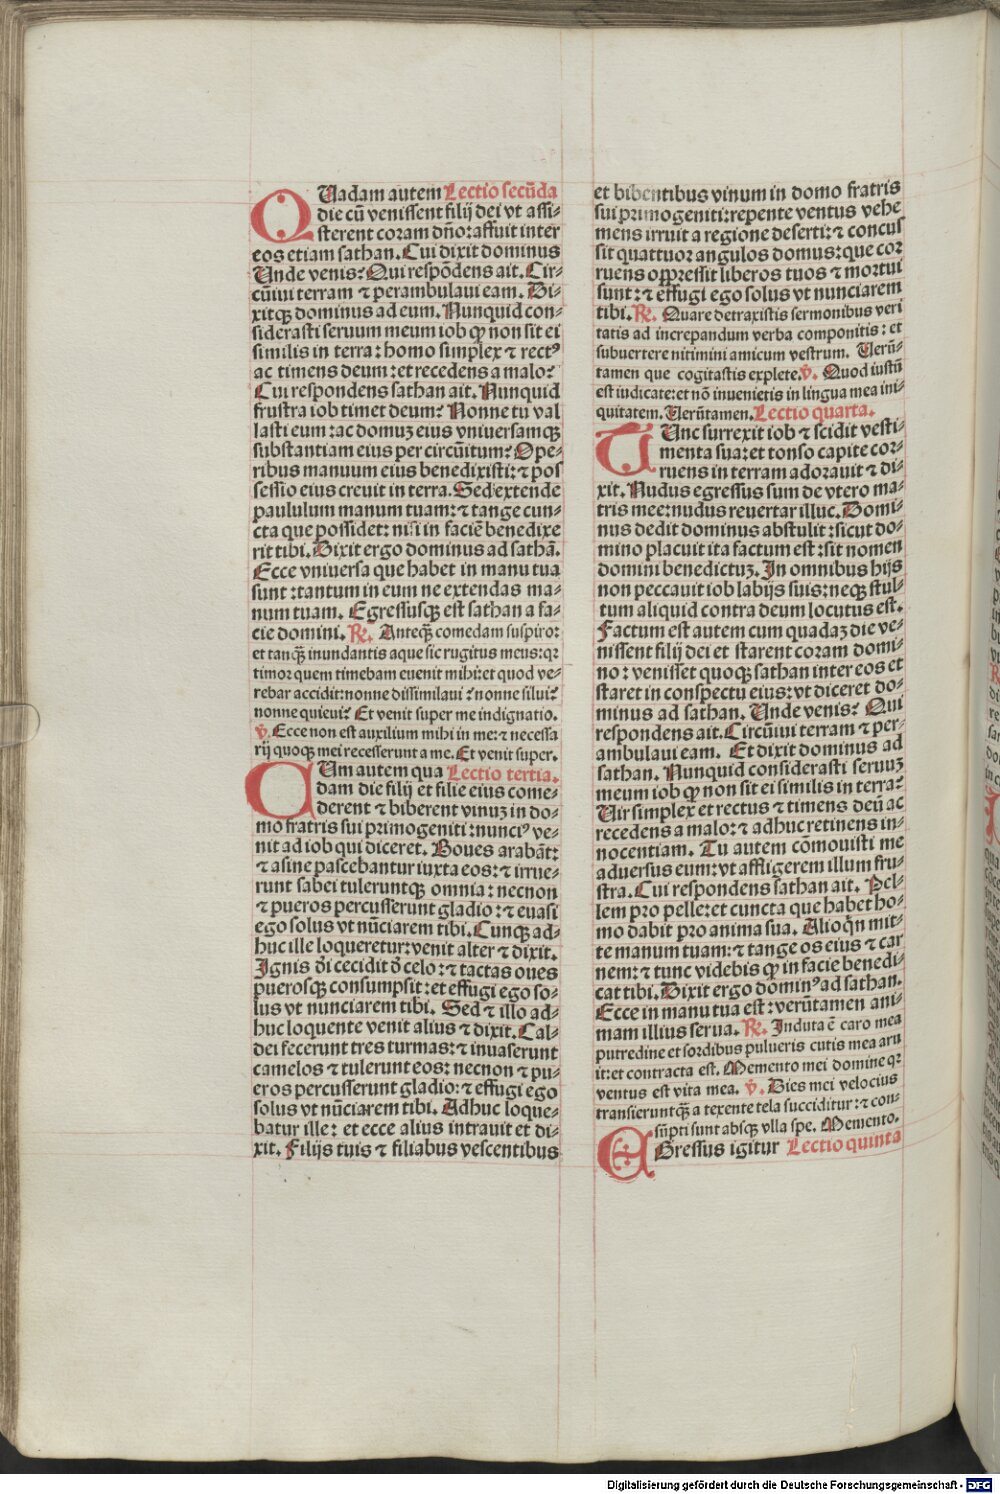 QUadam autem Lectio secūda
die cū venissent filij dei vt assi-
sterent coram dño: affuit inter
eos etiam sathan. Cui dixit dominus
Unde venis? Qui respōdens ait. Cir-
cūiui terram ⁊ perambulaui eam. Di-
xitqꝫ dominus ad eum. Nunquid con-
siderasti seruum meum iob ꝙ non sit ei
similis in terra: homo simplex ⁊ rectꝰ
ac timens deum: et recedens a malo?
Cui respondens sathan ait. Nunquid
frustra iob timet deum? Nonne tu val
lasti eum: ac domuꝫ eius vniuersamqꝫ
substantiam eius per circūitum? Ope-
ribus manuum eius benedixisti: ⁊ pos
sessio eius creuit in terra. Sed extende
paululum manum tuam: ⁊ tange cun-
cta que possidet: nisi in faciē benedixe
rit tibi. Dixit ergo dominus ad sathā.
Ecce vniuersa que habet in manu tua
sunt: tantum in eum ne extendas ma-
num tuam. Egressusqꝫ est sathan a fa-
cie domini. ℟. Anteqꝫ̄ comedam suspiro:
et tanqꝫ̄ inundantis aque sic rugitus meus: qꝛ
timor quem timebam euenit mihi: et quod ve-
rebar accidit: nonne dissimilaui? nonne silui?
nonne quieui? Et venit super me indignatio.
℣. Ecce non est auxilium mihi in me: ⁊ necessa
rij quoqꝫ mei recesserunt a me. Et venit super.
CUm autem qua Lectio tertia.
dam die filij et filie eius come-
derent ⁊ biberent vinuꝫ in do-
mo fratris sui primogeniti: nunciꝰ ve-
nit ad iob qui diceret. Boues arabāt:
⁊ asine pascebantur iuxta eos: ⁊ irrue-
runt sabei tuleruntqꝫ omnia: necnon
⁊ pueros percusserunt gladio: ⁊ euasi
ego solus vt nūciarem tibi. Cunqꝫ ad-
huc ille loqueretur: venit alter ⁊ dixit.
Ignis d̄i cecidit d̄ celo: ⁊ tactas oues
puerosqꝫ consumpsit: et effugi ego so-
lus vt nunciarem tibi. Sed ⁊ illo ad-
huc loquente venit alius ⁊ dixit. Cal-
dei fecerunt tres turmas: ⁊ inuaserunt
camelos ⁊ tulerunt eos: necnon ⁊ pu-
eros percusserunt gladio: ⁊ effugi ego
solus vt nūciarem tibi. Adhuc loque-
batur ille: et ecce alius intrauit et di-
xit. Filijs tuis ⁊ filiabus vescentibus
et bibentibus vinum in domo fratris
sui primogeniti: repente ventus vehe
mens irruit a regione deserti: ⁊ concus
sit quattuor angulos domus: que cor
ruens oppressit liberos tuos ⁊ mortui
sunt: ⁊ effugi ego solus vt nunciarem
tibi. ℟. Quare detraxistis sermonibus veri
tatis ad increpandum verba componitis: et
subuertere nitimini amicum vestrum. Uerū-
tamen que cogitastis explete. ℣. Quod iustū
est iudicate: et nō inuenietis in lingua mea ini-
quitatem. Uerūtamen. Lectio quarta.
TUnc surrexit iob ⁊ scidit vesti-
menta sua: et tonso capite cor-
ruens in terram adorauit ⁊ di-
xit. Nudus egressus sum de vtero ma-
tris mee: nudus reuertar illuc. Domi-
nus dedit dominus abstulit: sicut do-
mino placuit ita factum est: sit nomen
domini benedictuꝫ. In omnibus hijs
non peccauit iob labijs suis: neqꝫ stul-
tum aliquid contra deum locutus est.
Factum est autem cum quadaꝫ die ve-
nissent filij dei et starent coram domi-
no: venisset quoqꝫ sathan inter eos et
staret in conspectu eius: vt diceret do-
minus ad sathan. Unde venis? Qui
respondens ait. Circūiui terram ⁊ per-
ambulaui eam. Et dixit dominus ad
sathan. Nunquid considerasti seruuꝫ
meum iob ꝙ non sit ei similis in terra?
Uir simplex et rectus ⁊ timens deū ac
recedens a malo: ⁊ adhuc retinens in-
nocentiam. Tu autem cōmouisti me
aduersus eum: vt affligerem illum fru-
stra. Cui respondens sathan ait. Pel-
lem pro pelle: et cuncta que habet ho-
mo dabit pro anima sua. Alioqn̄ mit-
te manum tuam: ⁊ tange os eius ⁊ car
nem: ⁊ tunc videbis ꝙ in facie benedi-
cat tibi. Dixit ergo dominꝰ ad sathan.
Ecce in manu tua est: verūtamen ani-
mam illius serua. ℟. Induta ē caro mea
putredine et sordibus pulueris cutis mea aru
it: et contracta est. Memento mei domine qꝛ
ventus est vita mea. ℣. Dies mei velocius
transieruntqꝫ̄ a texente tela succiditur: ⁊ con-
sūpti sunt absqꝫ vlla spe. Memento.
EGressus igitur Lectio quinta
Digitalisierung gefördert durch die Deutsche Forschungsgemeinschaft - DFG